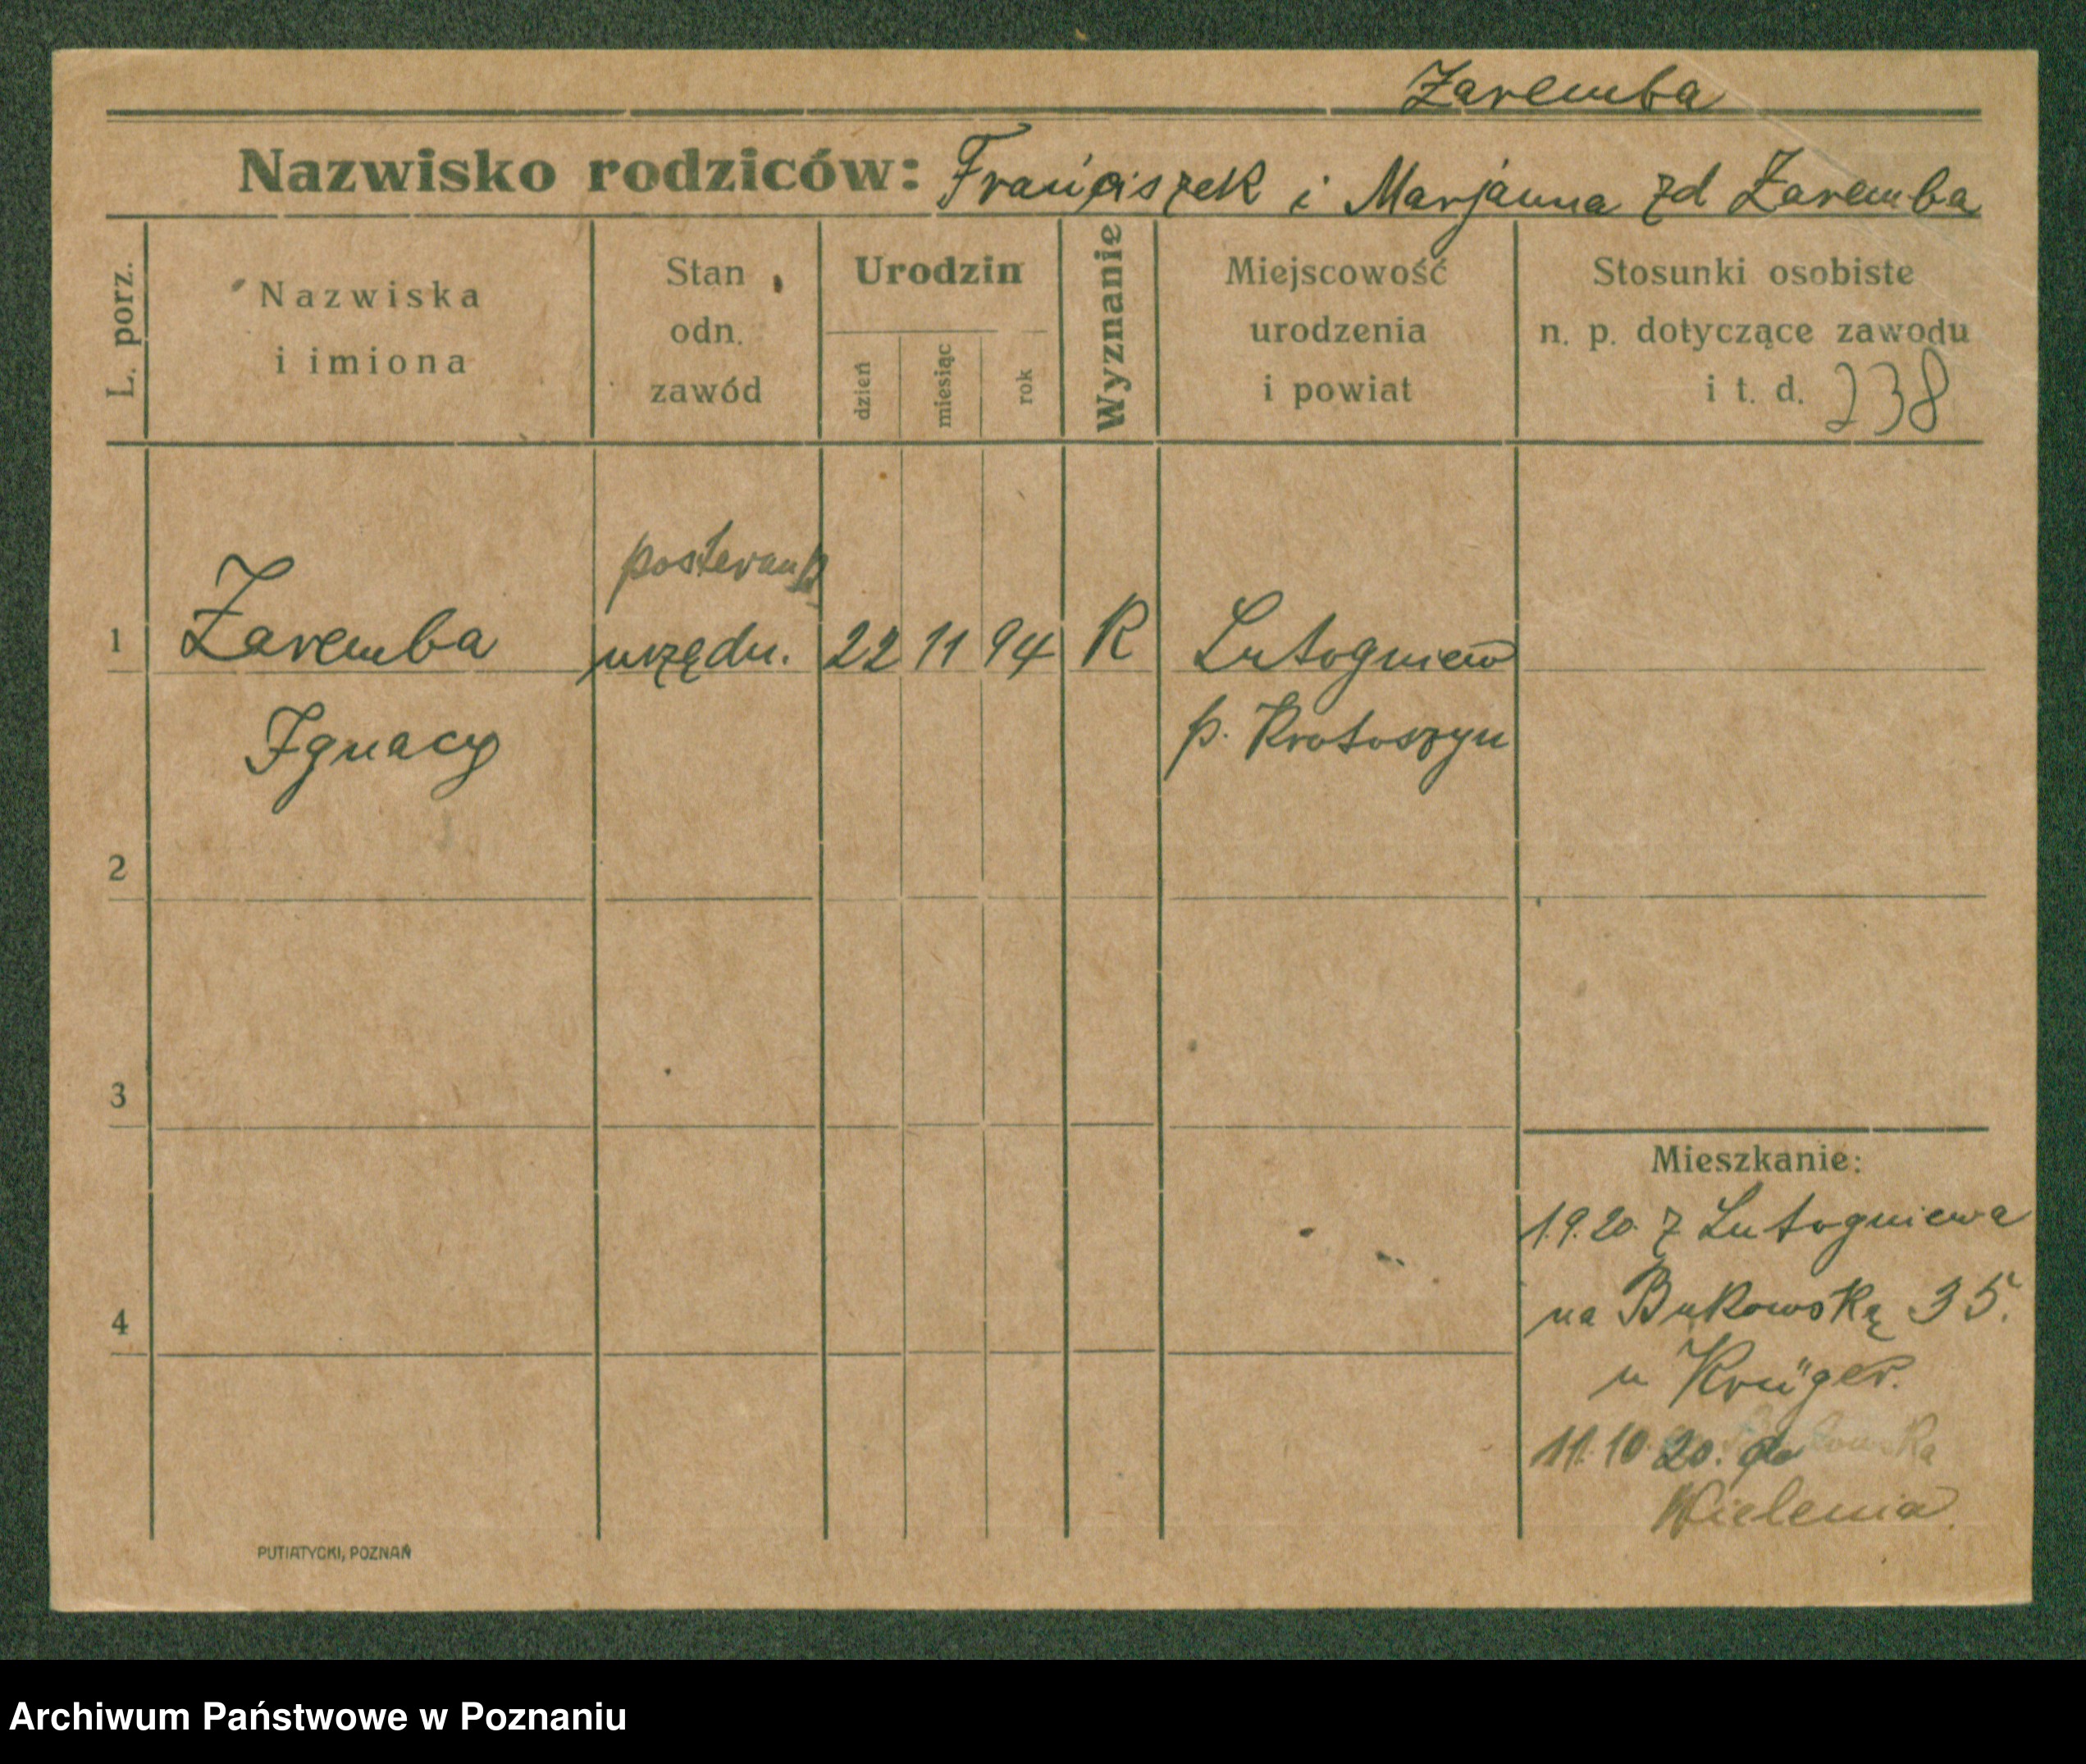 Zaremba
Nazwisko rodziców: Franciszek i Marjanna zd Zaremba
L. porz.
Nazwiska
i imiona
Stan
odn.
zawód
Urodzin
dzień
miesiąc
rok
Wyznanie
Miejscowość
urodzenia
i powiat
Stosunki osobiste
n. p. dotyczące zawodu
i t. d. 238
posterunk
1 Zaremba urzędn. 22 11 94 R Lutogniew
Ignacy p. Krotoszyn
2
3
4
Mieszkanie:
1.9.20. z Lutogniewa
na Bukowską 35.
u Krüger.
11.10.20. do
Wielenia.
PUTIATYCKI, POZNAŃ
Archiwum Państwowe w Poznaniu